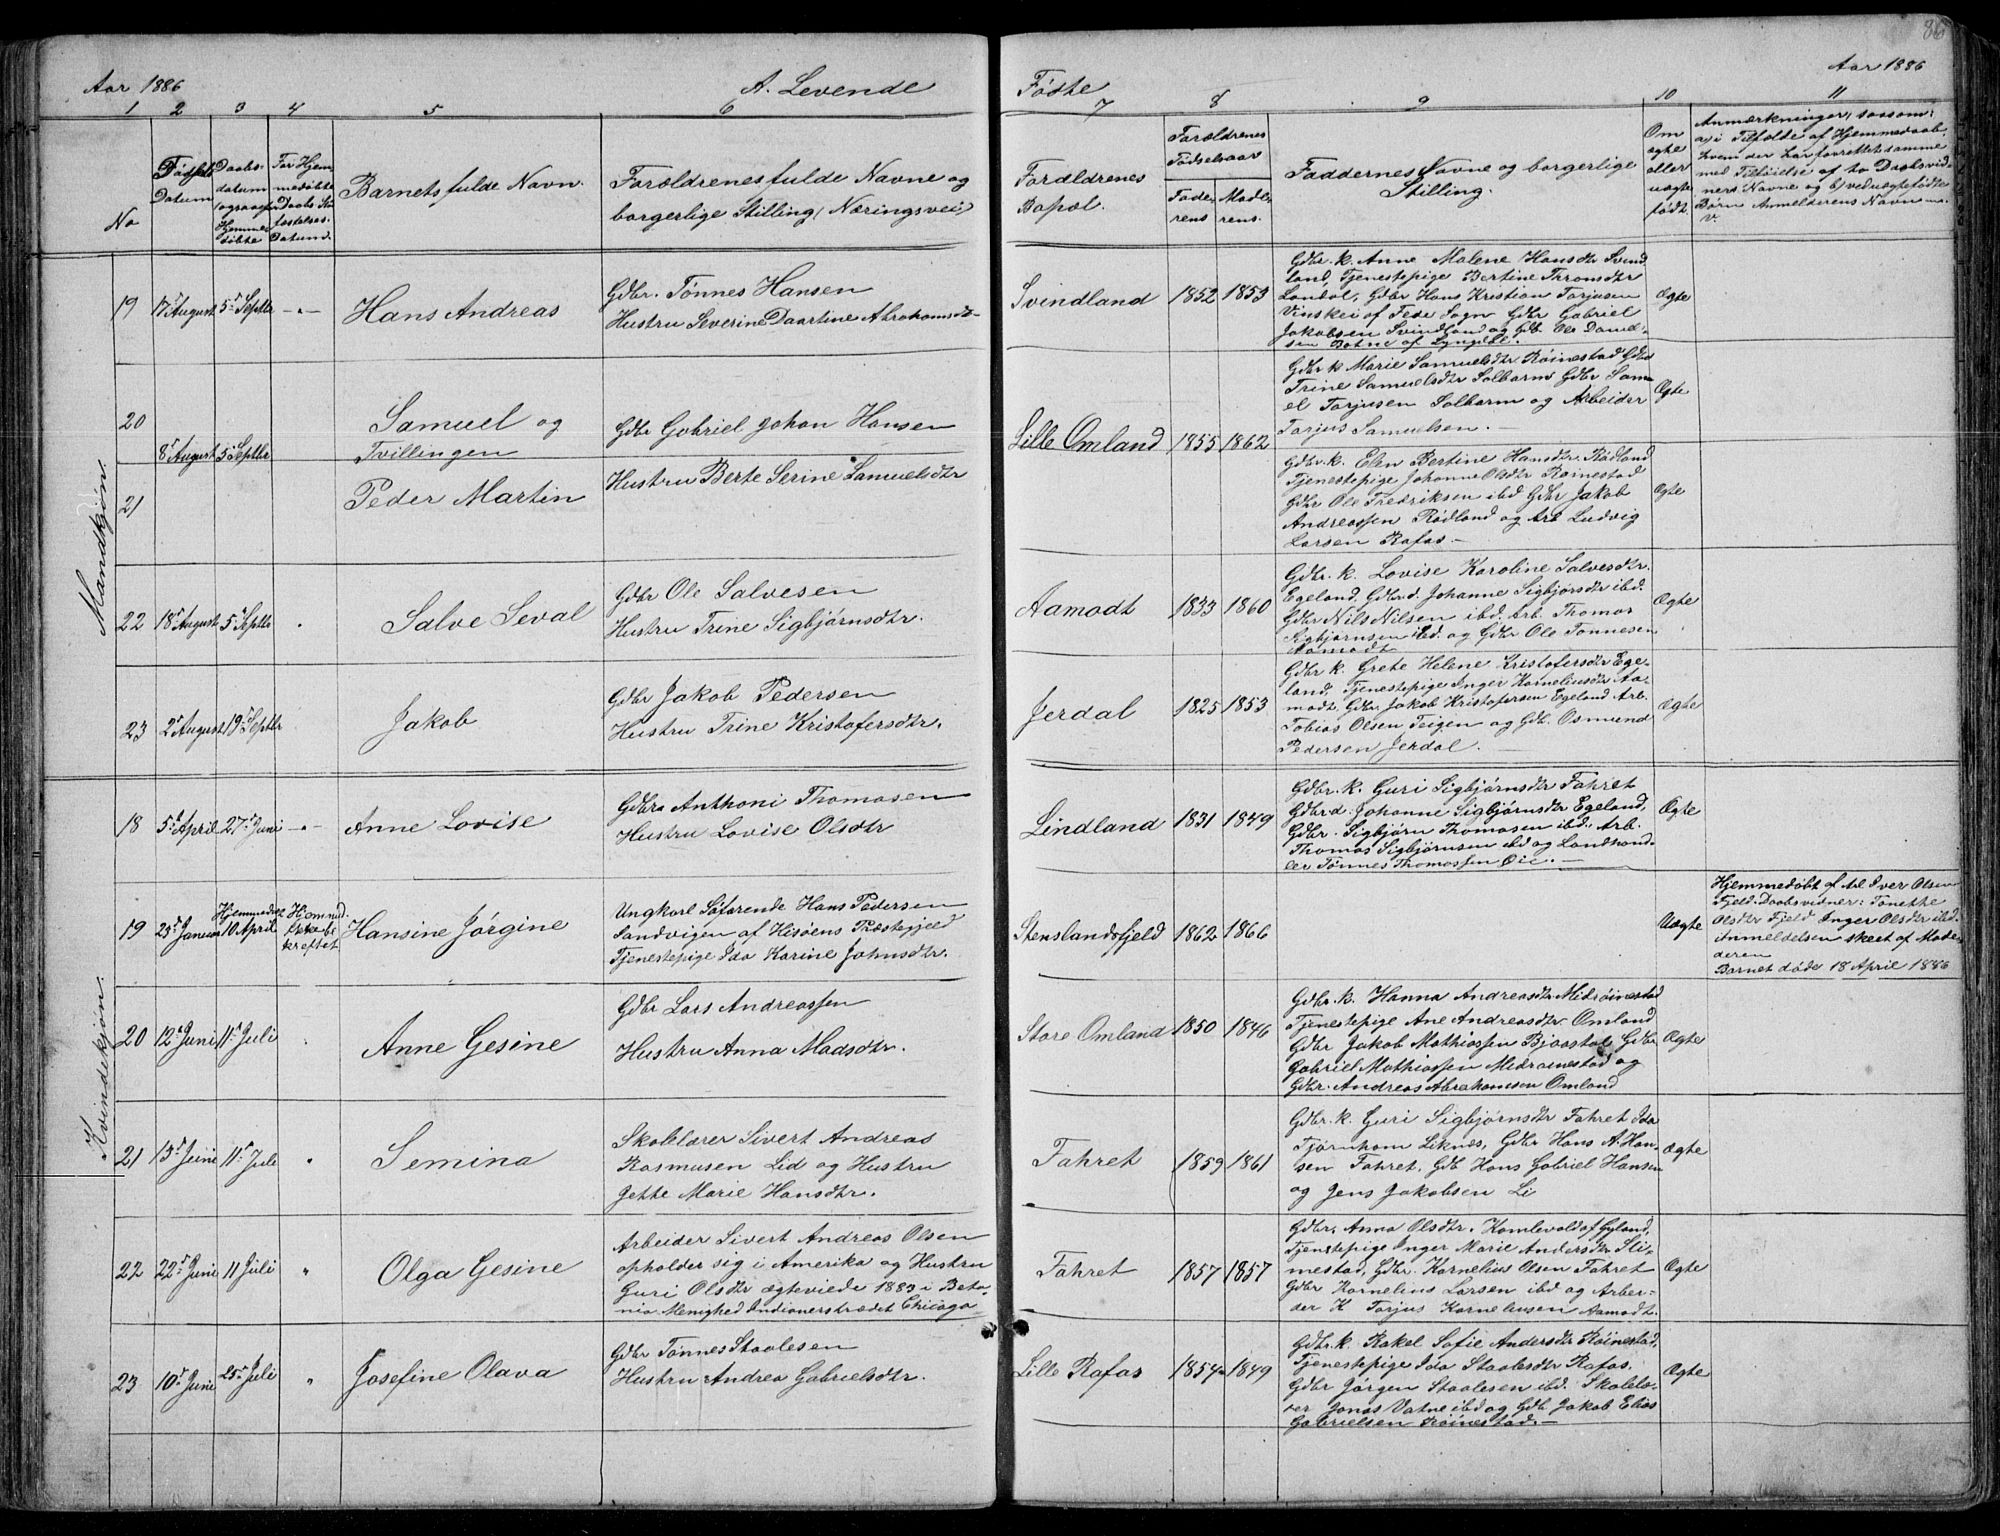 86
Aar 1886
A. Levende
Fødte
Aar 1886
1 2 3 4 5 6 7 8 9 10 11
No
Fødsels
Datum
Daabs-
datum
(ogsaa for
Hjemme-
døbte
For Hjem-
medøbte
Daabs Sta-
festelses-
Datum.
Barnets fulde Navn.
Forældrenes fulde Navne og
borgerlige Stilling (Næringsvei)
Forældrenes
Bopæl.
Forældrenes
Fødselsaar
Fade-
rens
Mode-
rens.
Faddernes Navne og borgerlige
Stilling.
Om
ægte
eller
uægte
født.
Anmærkninger, saasom:
a, i Tilfælde af Hjemmedaab,
hvem der har forrettet samme
med Tilføielse af to Daabsvid-
ners Navne og b) ved uægte fødte
Børn Anmelderens Navn m.
v.
Mandkjøn.
19 17de August 5te Septbr -"- Hans Andreas
Gdbr. Tønnes Hansen
Hustru Severine Daartine Abrahamsdtr
Svindland 1852 1853
Gdbr. k. Anne Malene Hansdtr Svind-
land, Tjenestepige Bertine Thronsdtr
Landdal, Gdbr Hans Kristian Tarjusen
Vinskei af Fede Sogn Gdbr Gabriel
Jakobsen Svindland og Gdb. Ole Daniel-
sen Botne af Lyngdal.
Ægte
20
21
8de August 5te Septbr
Samuel og
Tvillingen
Peder Martin
Gdbr Gabriel Johan Hansen
Hustru Berte Serine Samuelsdtr
Lille Omland 1855 1862
Gdbr k Marie Samuelsdtr Røinestad Gdbr
Trine Samuelsdtr Salbarm Gdbr Sam-
el Tarjusen Salbarm og Arbeider
Tarjus Samuelsen.
Ægte
Gdbr. k. Elen Bertine Hansdtr Rødland
Tjenestepige Johanne Olsdtr Røinestad
Gdbr Ole Fredriksen ibd Gdbr Jakob
Andreassen Rødland og Arb Ludvig
Larsen Rafos.-
Ægte
22 18de August 5te Septbr " Salve Seval
Gdbr Ole Salvesen
Hustru Trine Sigbjørnsdtr.
Aamodt 1833 1860
Gdbr. k. Lovise Karoline Salvesdtr.
Egeland, Gdbr.d. Johanne Sigbjørsdtr ibd.
Gdbr Nils Nilsen ibd. Arb. Thomas
Sigbjørnsen ibd. og Gdbr Ole Tønnesen
Aamodt
Ægte
23 2de August 19de Septbr Jakob
Gdbr Jakob Pedersen
Hustru Trine Kristofersdtr.
Jerdal 1825 1853
Gdbr. k. Grete Helene Kristofersdtr Ege-
land, Tjenestepige Inger Korneliusdtr Aa-
modt. Gdbr. Jakob Kristofersen Egeland Arb.
Tobias Olsen Teigen og Gdb. Osmund
Pedersen Jerdal.
Ægte
Kvindekjøn.
18 5te April 27de Juni -"- Anne Lovise
Gdbr Anthoni Thomasen
Hustru Lovise Olsdtr
Lindland 1831 1849
Gdbr. k. Guri Sigbjørnsdtr Fahret
Gdbr.d. Johanne Sigbjørnsdtr Egeland,
Gdbr. Sigbjørn Thomasen ibd. Arb.
Thomas Sigbjørnsen ibd og Landhand-
ler Tønnes Thomassen Øie.-
Ægte
19 23de Januar Hjemmedøbt
10 April Hjemmed.
ikke be-
kræftet Hansine Jørgine
Ungkarl Søfarende Hans Pedersen
Sandvigen af Hisøens Præstegjeld
Tjenestepige Ida Karine Johnsdtr.
Stenslandsfjeld 1862 1866
Uægte
Hjemmedøbt af Arb Iver Olsen
Fjeld. Daabsvidner: Tonette
Olsdtr Fjeld Inger Olsdtr ibd.
Anmeldelsen skeet af Mode-
deren
Barnet døde 18 April 1886
20 12te Juni 11te Juli Anne Gesine
Gdbr Lars Andreassen
Hustru Anna Madsdtr.
Store Omland 1850 1846
Gdbr. k. Hanna Andreasdtr Midrøinestad
Tjenestepige Ane Andreasdtr Omland
Gdbr Jakob Mathiassen Bjaastal Gdbr
Gabriel Mathiassen Midrøinestad og
Gdbr. Andreas Abrahamsen Omland
Ægte
21 13de Juni 11te Juli " Semina
Skolelærer Sivert Andreas
Rasmusen Lid og Hustru
Jette Marie Hansdtr.
Fahret 1859 1861
Gdbr. k. Guri Sigbjørnsdtr Fahret Ida
Tjørnhom Liknes, Gdbr Hans A. Han-
sen Fahret, Gdb Hans Gabriel Hansen
og Jens Jakobsen Li
Ægte
22 22de Juni 11 Juli " Olga Gesine
Arbeider Sivert Andreas Olsen
opholder sig i Amerika og Hustru
Guri Olsdtr ægteviede 1883 i Beta-
nia Menighed Indianerstrædet Chicago
Fahret 1857 1857
Gdbr. Anna Olsdtr. Kamlevold af Gyland,
Tjenestepige Inger Marie Andersdtr Sti-
mestad, Gdbr. Kornelius Olsen Fahret
Gdbr Kornelius Larsen ibd og Arbei-
der K Tarjus Korneliusen Aamodt.
Ægte
23 10de Juni 25de Juli " Josefine Olava
Gdbr Tønnes Staalesen
Hustru Andrea Gabrielsdtr.
Lille Rafos 1854 1849
Gdbr. k. Rakel Sofie Andersdtr Røinestad,
Tjenestepige Ida Staalesdtr Rafos.
Gdbr Jørgen Staalesen ibd. Skolelæ-
rer Jonas Vatne ibd og Gdb. Jakob Elias
Gabrielsen Røinestad.-
Ægte